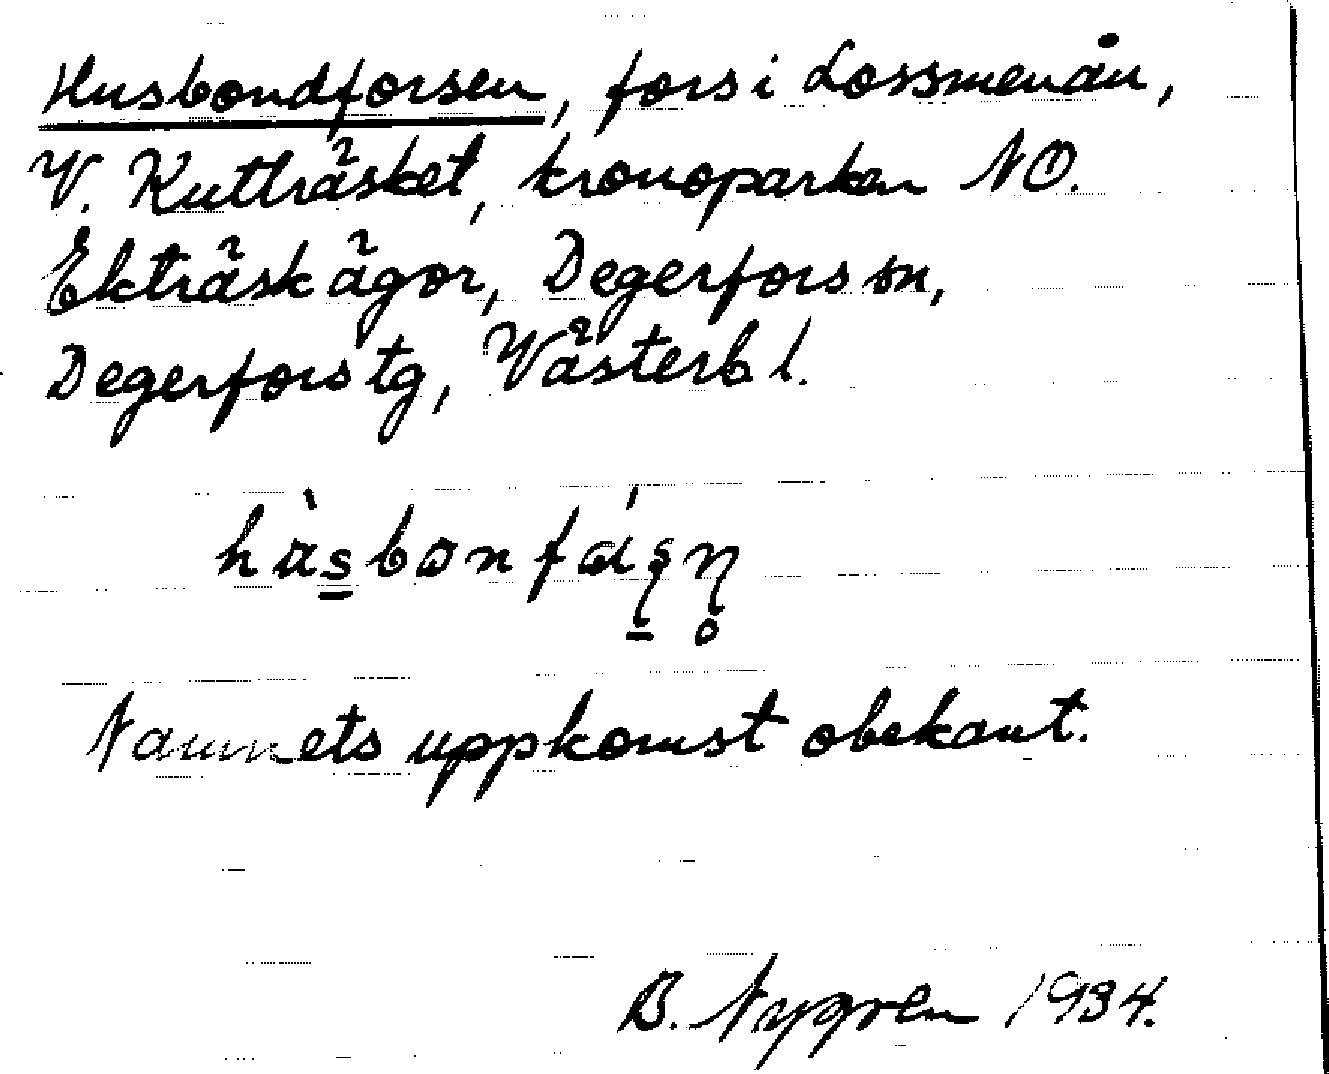 Husbondforsen, fors i Lossmenån,
V. Kutträsket, kronoparken NO.
Ekträskägor, Degerfors sn,
Degerfors tg, Västerb l.
hùsbonfáṣn̥
Namnets uppkomst obekant.
B. Nygren 1934.